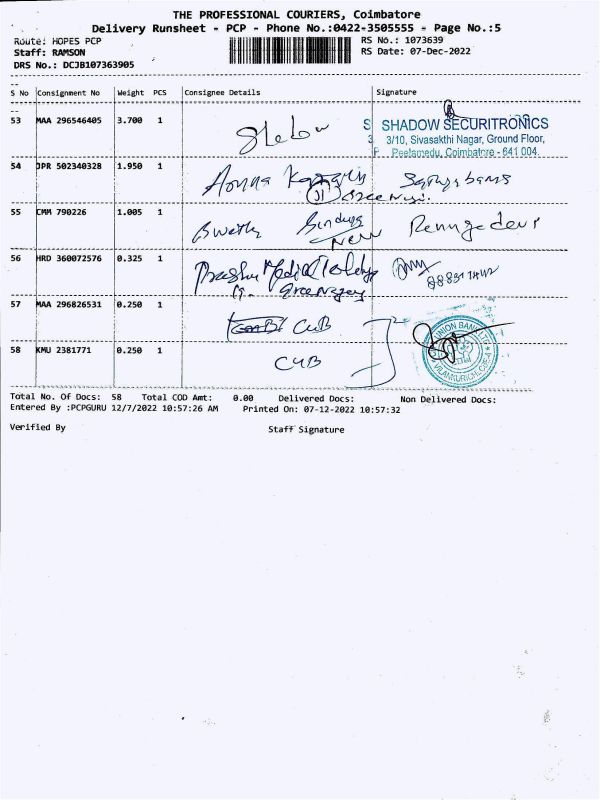 THE PROFESSIONAL COURIERS, Coimbatore
Delivery Runsheet - PCP - Phone No.:0422-3505555 - Page No.:5
Route: HOPES PCP
RS No.: 1073639
Staff: RAMSON
RS Date: 07-Dec-2022
DRS No.: DCJB107363905
S No Consignment No Weight PCS Consignee Details Signature
53 MAA 296546405 3.700 1
SHADOW SECURITRONICS
3/10, Sivasakthi Nagar, Ground Floor,
Peelamedu, Coimbatore - 641 004.
54 JPR 502340328 1.950 1
55 CMM 790226 1.005 1
New
56 HRD 360072576 0.325 1
57 MAA 296826531 0.250 1 CUB
58 KMU 2381771 0.250 1 CUB
UNION BANK
Total No. Of Docs: 58 Total COD Amt: 0.00 Delivered Docs: Non Delivered Docs:
Entered By :PCPGURU 12/7/2022 10:57:26 AM Printed On: 07-12-2022 10:57:32
Verified By Staff Signature